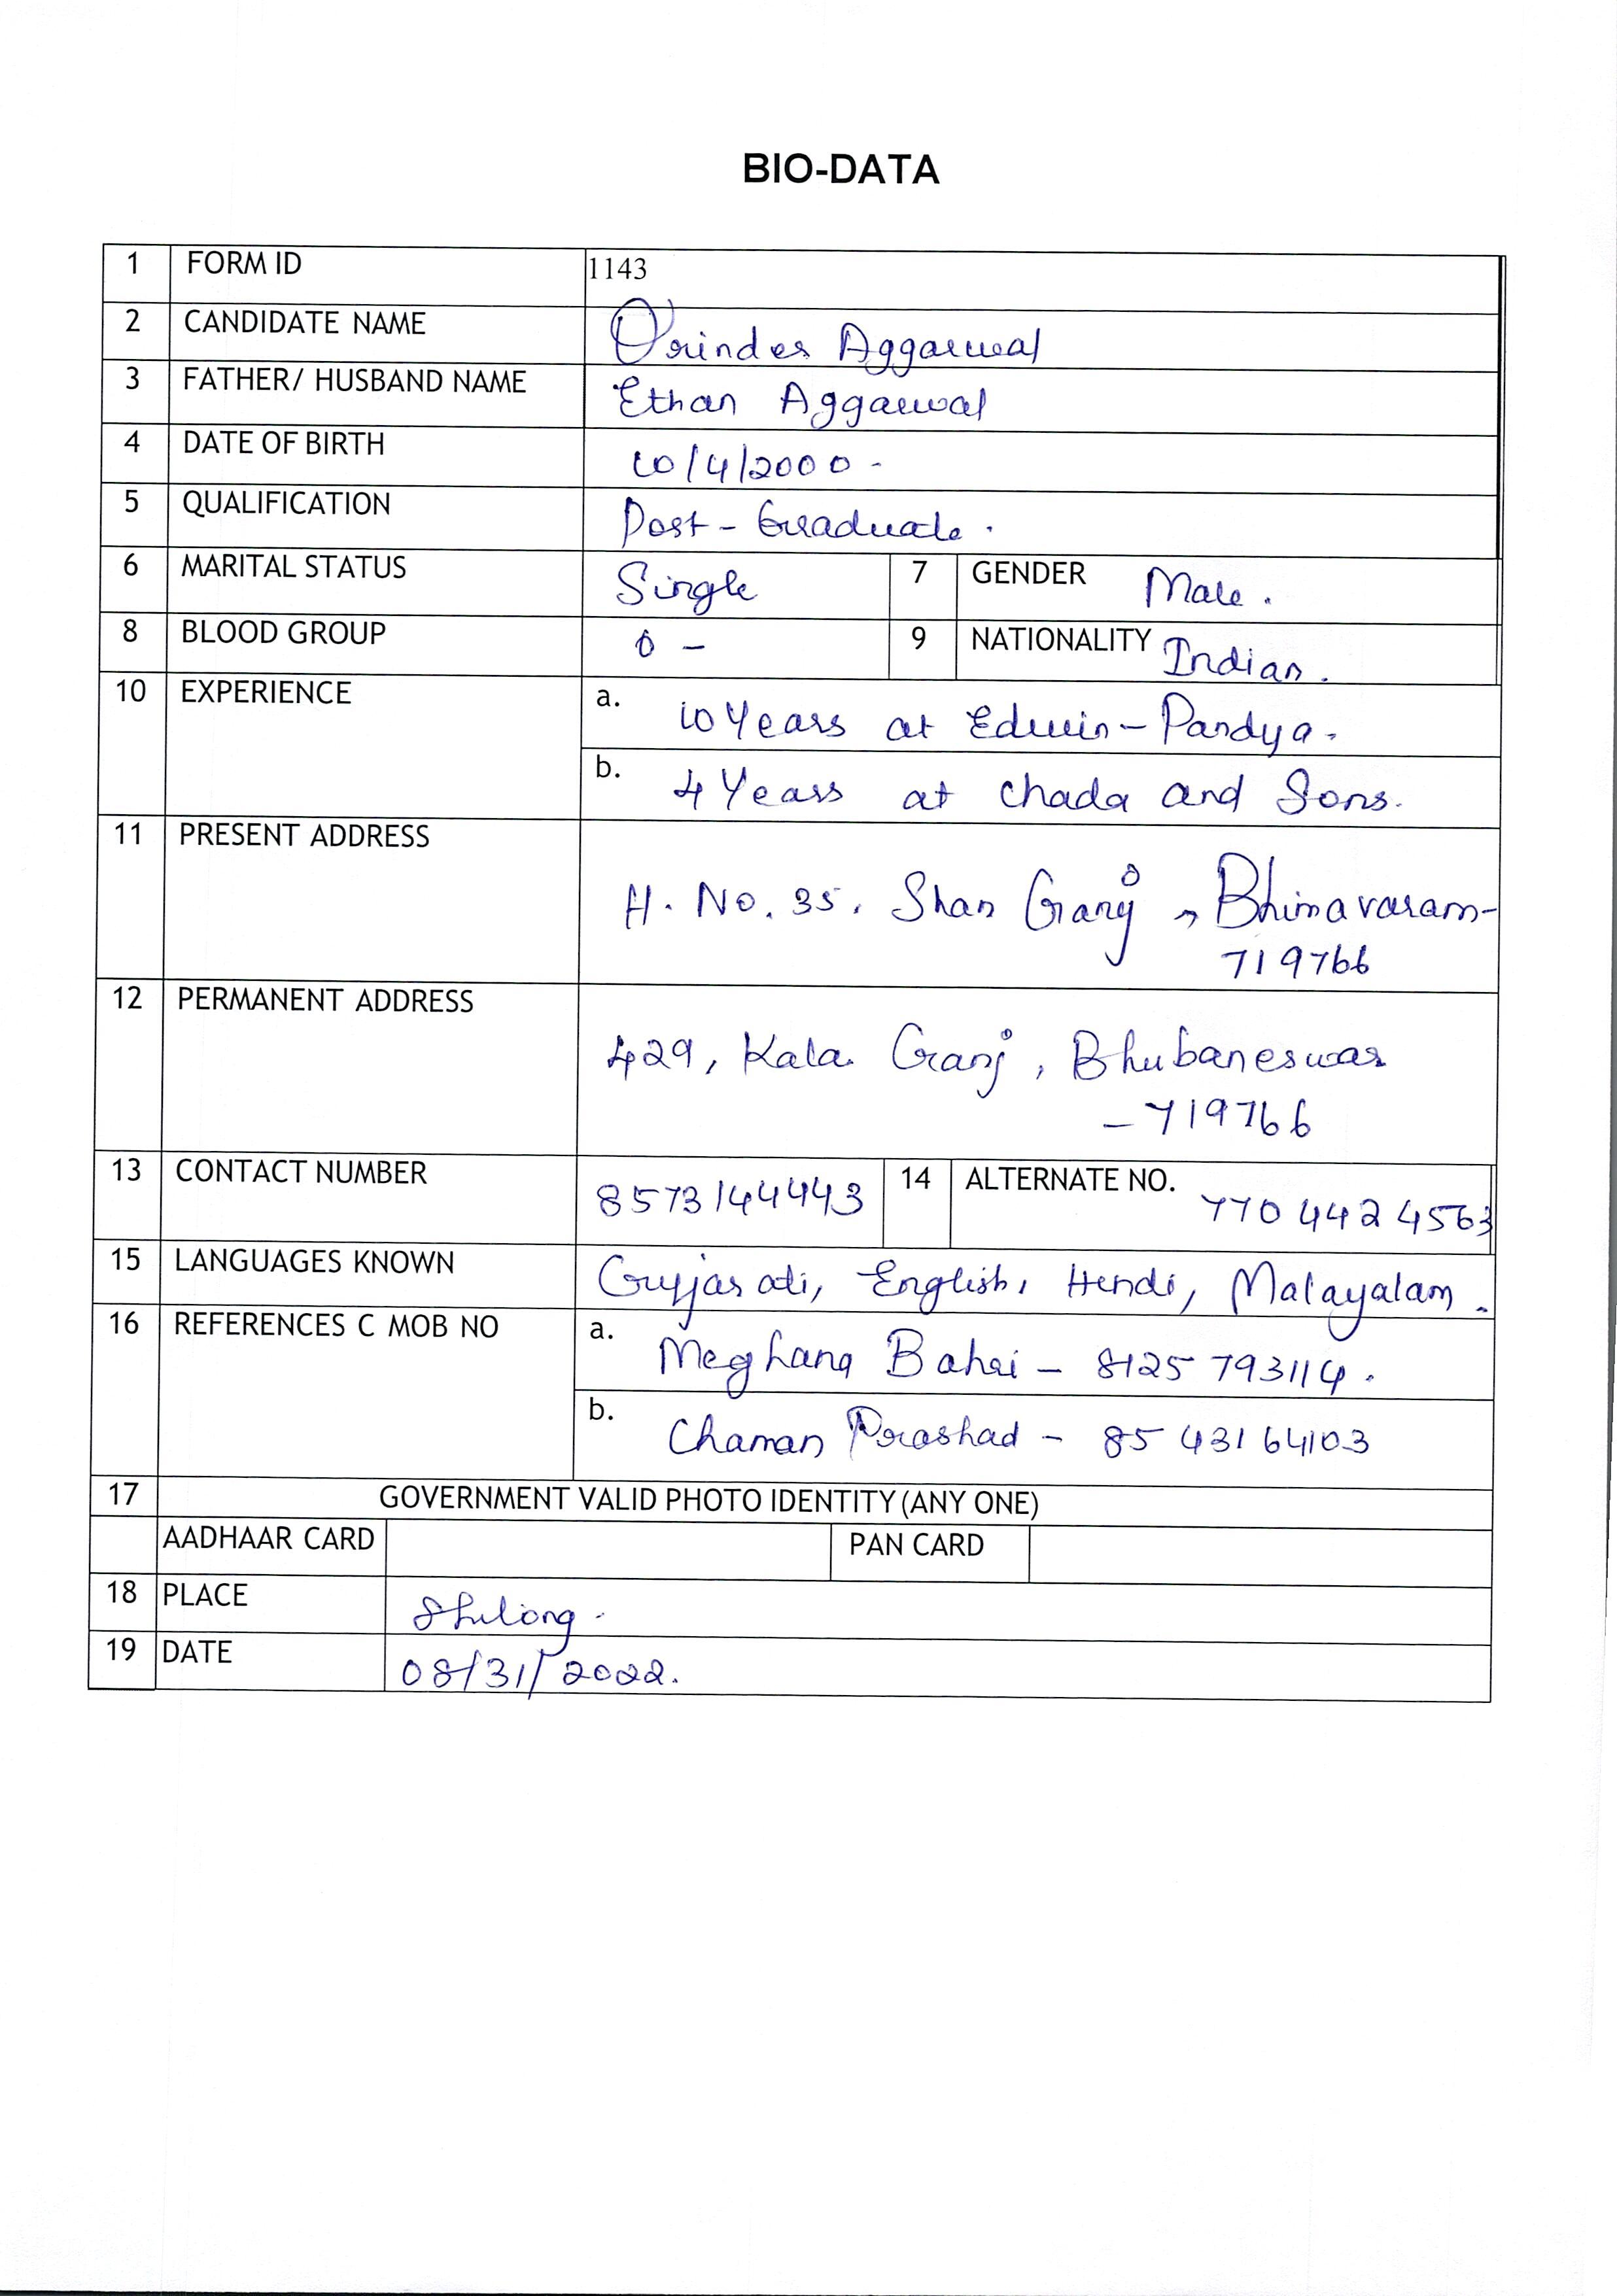 BIO-DATA
1 FORM ID 1143
2 CANDIDATE NAME Orinder Aggarwal
3 FATHER/ HUSBAND NAME Ethan Aggarwal
4 DATE OF BIRTH 10/4/2000 -
5 QUALIFICATION Post - Graduate.
6 MARITAL STATUS Single 7 GENDER Male.
8 BLOOD GROUP O - 9 NATIONALITY Indian.
10 EXPERIENCE a. 10 Years at Edwin - Pandya.
b. 4 Years at Chada and Sons.
11 PRESENT ADDRESS
H. No. 35, Shan Ganj, Bhimavaram-
719766
12 PERMANENT ADDRESS
429, Kala Ganj, Bhubaneswar
- 719766
13 CONTACT NUMBER 8573144443 14 ALTERNATE NO. 7704424563
15 LANGUAGES KNOWN Gujjarati, English, Hindi, Malayalam.
16 REFERENCES C MOB NO a. Meghana Bahri - 8125793114.
b. Chaman Prashad - 8543164103
17 GOVERNMENT VALID PHOTO IDENTITY (ANY ONE)
AADHAAR CARD PAN CARD
18 PLACE Shilong.
19 DATE 08/31/2022.